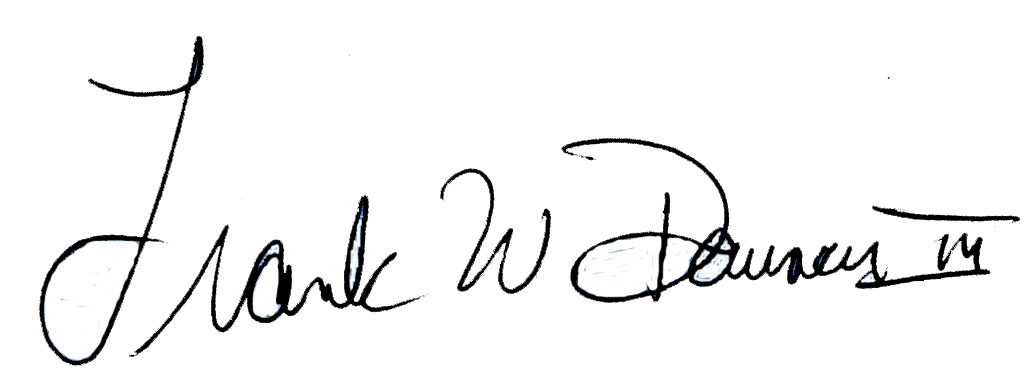 Frank W Downey III